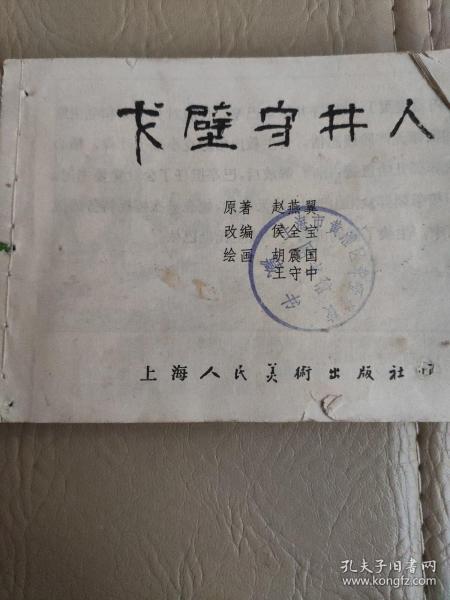 戈壁守井人
原著 赵燕翼
改编 侯全宝
绘画 胡震国
王守中
上海人民美術出版社
孔夫子旧书网
www.kongfz.com